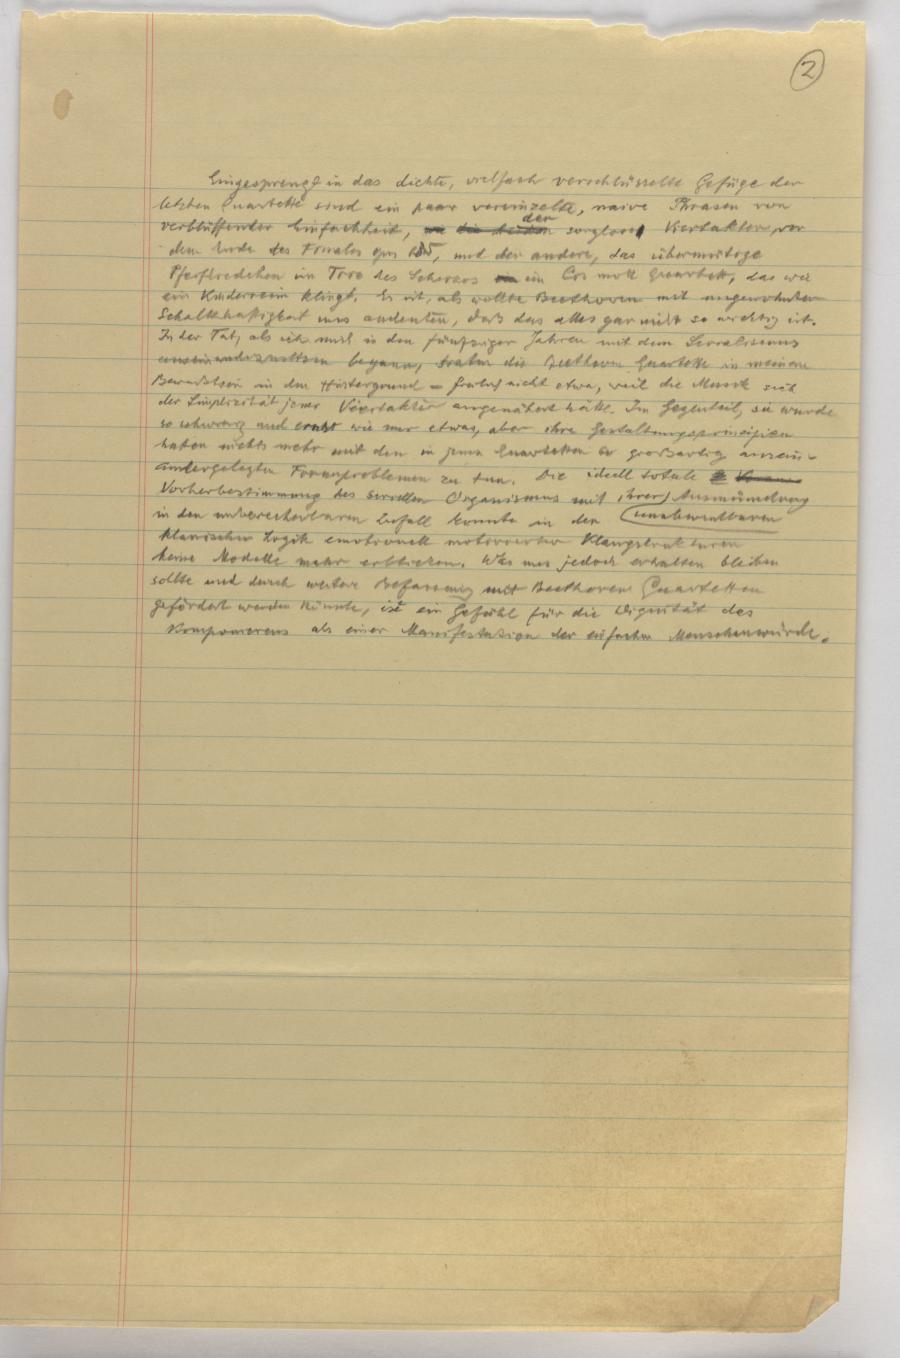 2
Eingesprengt in das dichte, vielfach verschlüsselte Gefüge der
letzten Quartette sind ein paar vereinzelte, naive Phrasen von
verblüffender Einfachheit, der sorglose Viertakter vor
dem Ende des Finales opus 135, und der andere, das übermütige
Pfeifliedchen im Trio des Scherzos im Cis moll Quartett, das wie
ein Kinderreim klingt. Es ist, als wollte Beethoven mit ungewohnter
Schalkhaftigkeit uns andeuten, daß das alles gar nicht so wichtig ist.
In der Tat, als ich mich in den fünfziger Jahren mit dem Serialismus
auseinanderzusetzen begann, traten die Beethoven Quartette in meinem
Bewußtsein in den Hintergrund – freilich nicht etwa, weil die Musik sich
der Simplizität jener Viertakter angenähert hätte. Im Gegenteil, sie wurde
so schwarz und ernst wie nur etwas, aber ihre Gestaltungsprinzipien
hatten nichts mehr mit den in jenen Quartetten so großartig ausein-
andergelegten Formproblemen zu tun. Die ideell totale
Vorherbestimmung des seriellen Organismus mit ihrer Ausmündung
in den unberechenbaren Zufall konnte in den unabwendbaren
klassischer Logik emotionell motivierter Klangstrukturen
keine Modelle mehr erblicken. Was uns jedoch erhalten bleiben
sollte und durch weitere Befassung mit Beethovens Quartetten
gefördert werden könnte, ist ein Gefühl für die Dignität des
Komponierens als einer Manifestation der einfachen Menschenwürde.